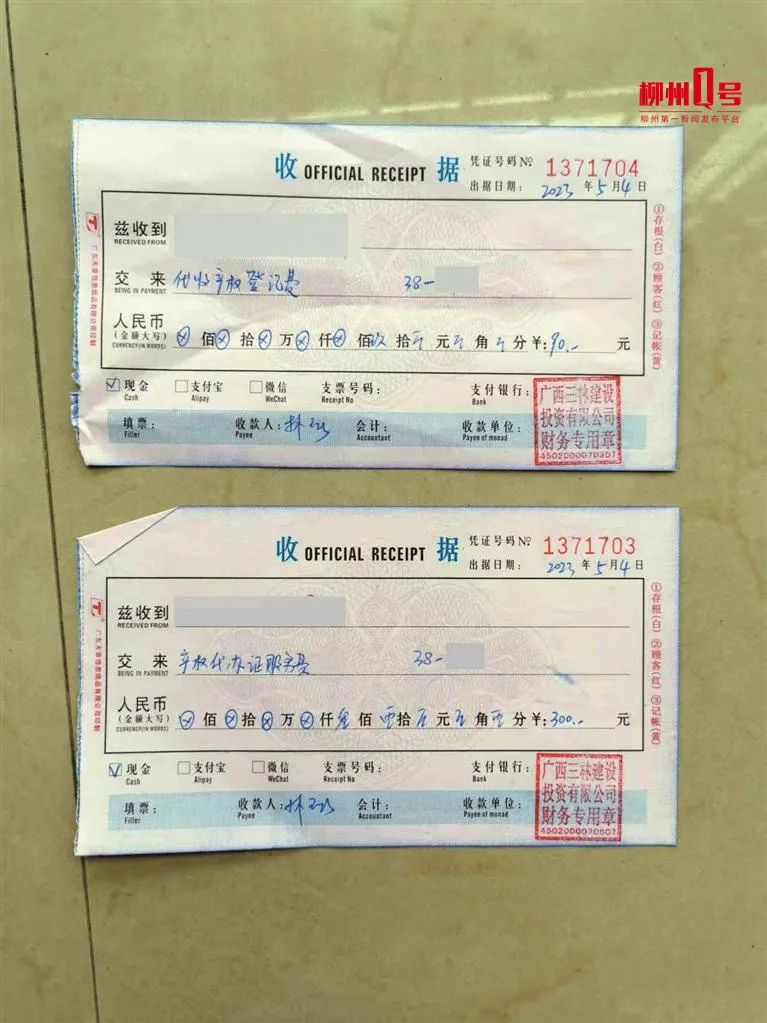 柳州Q号
柳州第一新闻发布平台
收 OFFICIAL RECEIPT 据
凭证号码 No 1371704
出据日期: 2023 年 5 月 4 日
兹收到
RECEIVED FROM
交 来 代收产权登记费 38-
BEING IN PAYMENT
人民币
(金额大写) ⊗ 佰 ⊗ 拾 ⊗ 万 ⊗ 仟 ⊗ 佰 玖 拾 元 角 分 ¥: 90.- 元
CURRENCY(IN WORDS)
☑ 现金 □ 支付宝 □ 微信 支票号码: 支付银行:
Cash Alipay WeChat Receipt No Bank
填票: 收款人: 林 会计: 收款单位:
Filler Payee Accountant Payee of monad
广西三林建设
投资有限公司
财务专用章
4502000070807
①存根(白) ②顾客(红) ③记帐(黄)
广东天章信息纸品有限公司印制
收 OFFICIAL RECEIPT 据
凭证号码 No 1371703
出据日期: 2023 年 5 月 4 日
兹收到
RECEIVED FROM
交 来 产权代办证服务费 38-
BEING IN PAYMENT
人民币
(金额大写) ⊗ 佰 ⊗ 拾 ⊗ 万 ⊗ 仟 叁 佰 零 拾 元 角 零 分 ¥: 300.- 元
CURRENCY(IN WORDS)
☑ 现金 □ 支付宝 □ 微信 支票号码: 支付银行:
Cash Alipay WeChat Receipt No Bank
填票: 收款人: 林 会计: 收款单位:
Filler Payee Accountant Payee of monad
广西三林建设
投资有限公司
财务专用章
4502000070807
①存根(白) ②顾客(红) ③记帐(黄)
广东天章信息纸品有限公司印制